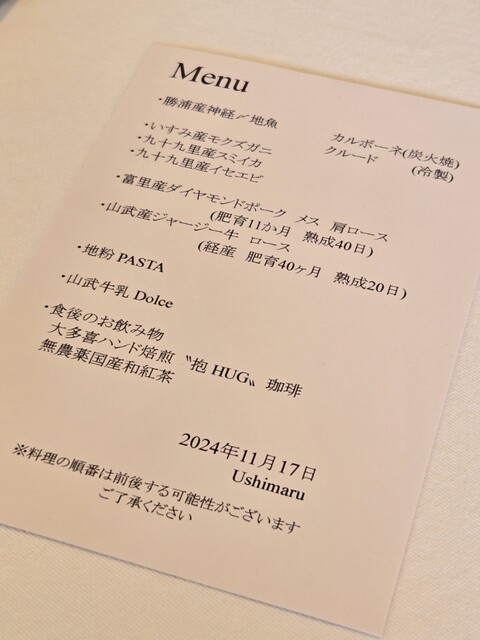 Menu
・勝浦産神経〆地魚
・いすみ産モクズガニ カルボーネ(炭火焼)
・九十九里産スミイカ クルード (冷製)
・九十九里産イセエビ
・富里産ダイヤモンドポーク メス 肩ロース
(肥育11か月 熟成40日)
・山武産ジャージー牛 ロース
(経産 肥育40ヶ月 熟成20日)
・地粉 PASTA
・山武牛乳 Dolce
・食後のお飲み物
大多喜ハンド焙煎 〝抱 HUG〟 珈琲
無農薬国産和紅茶
2024年11月17日
Ushimaru
※料理の順番は前後する可能性がございます
ご了承ください